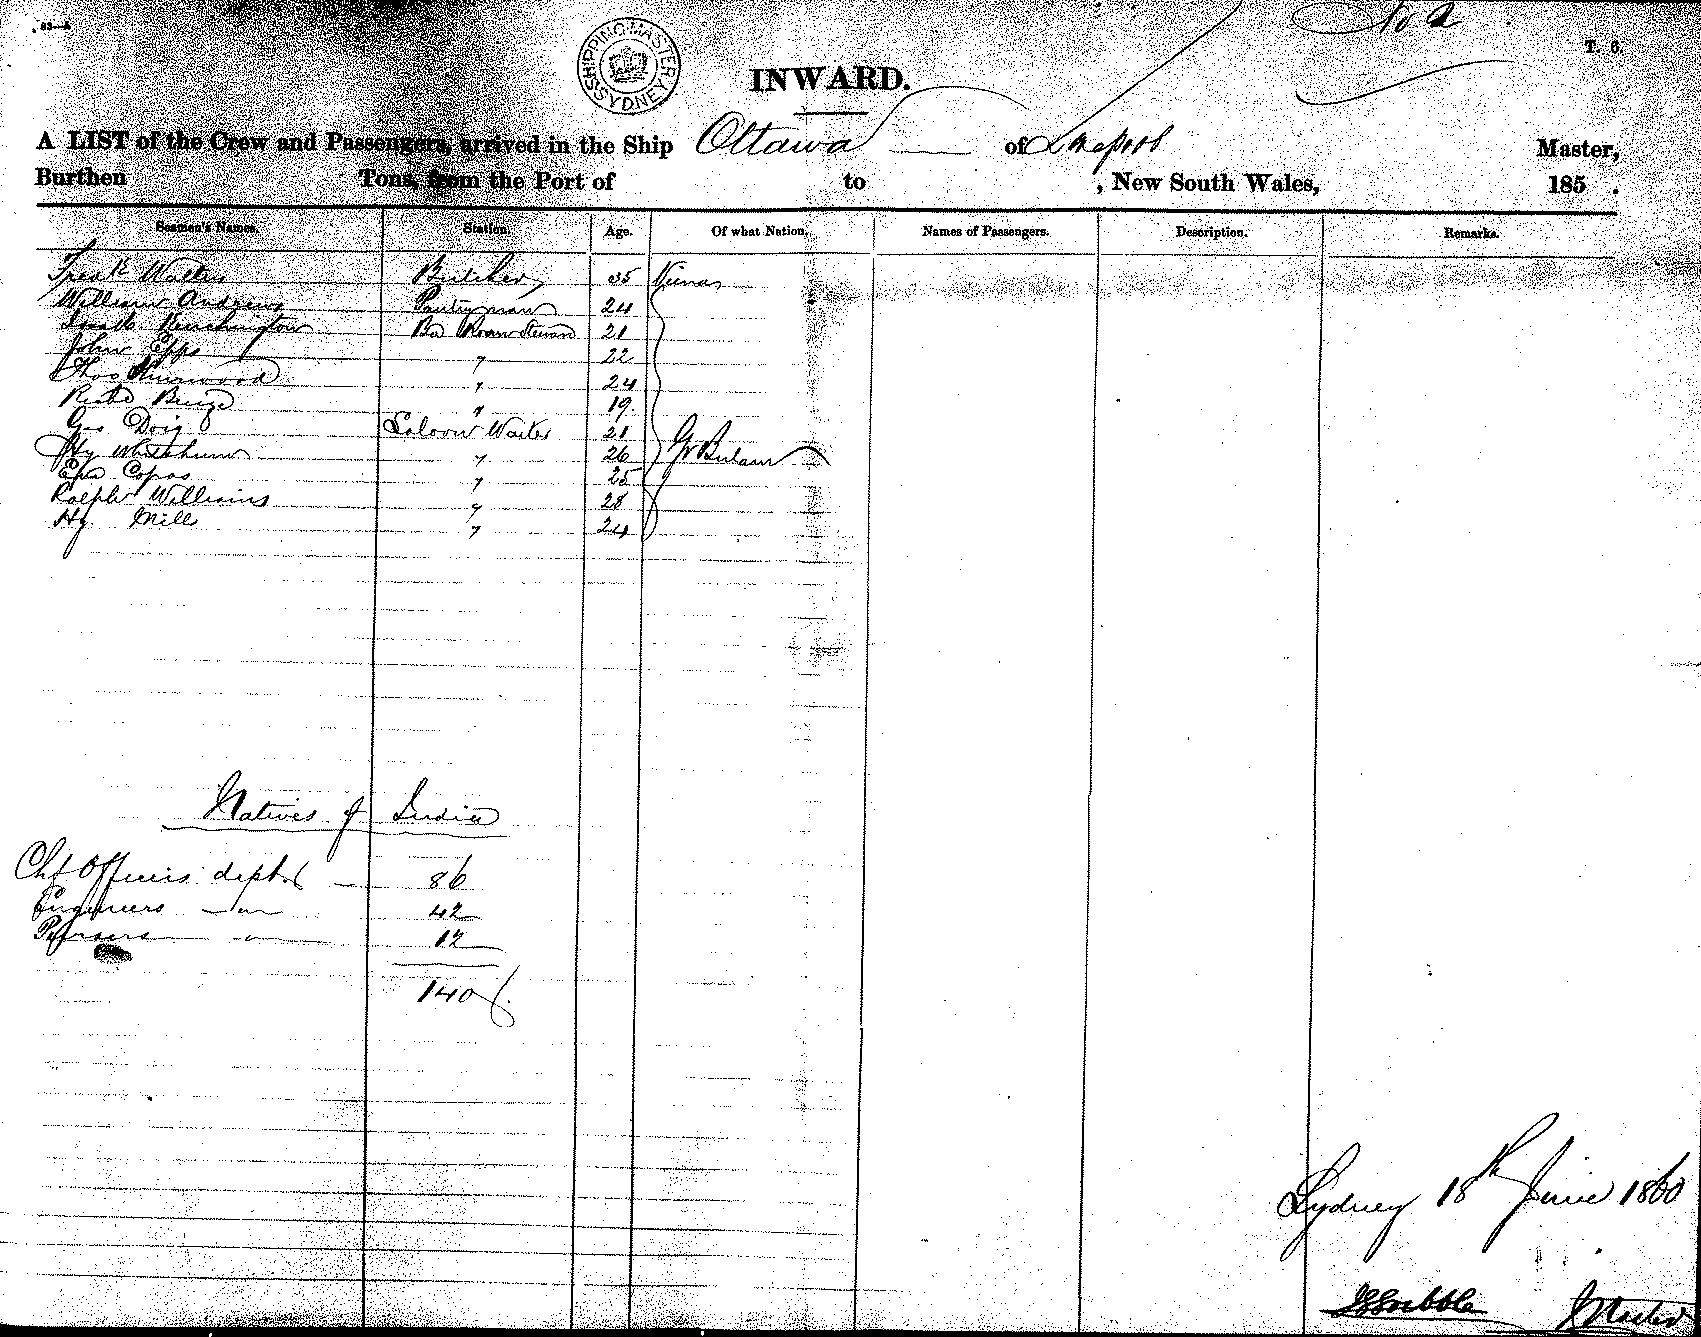 No 2
T. 6.
SHIPPING MASTER SYDNEY
INWARD.
A LIST of the Crew and Passengers, arrived in the Ship Ottawa of Liverpool Master,
Burthen Tons, from the Port of to , New South Wales, 185 .
Seamen's Names. Station. Age. Of what Nation. Names of Passengers. Description. Remarks.
Walters Butcher 35
William Andrews Pantryman 24
21
John Epps " 22
Thos " 24
" 19
Geo Doig Saloon Waiter 21
Hy " 26 Gt Britain
Copas " 25
Ralph Williams " 28
Hy Mill " 24
Natives of India
Chf Officers dept. 86
Engineers 42
Pursers 12
140
Sydney 18th June 1860
Gribble Master